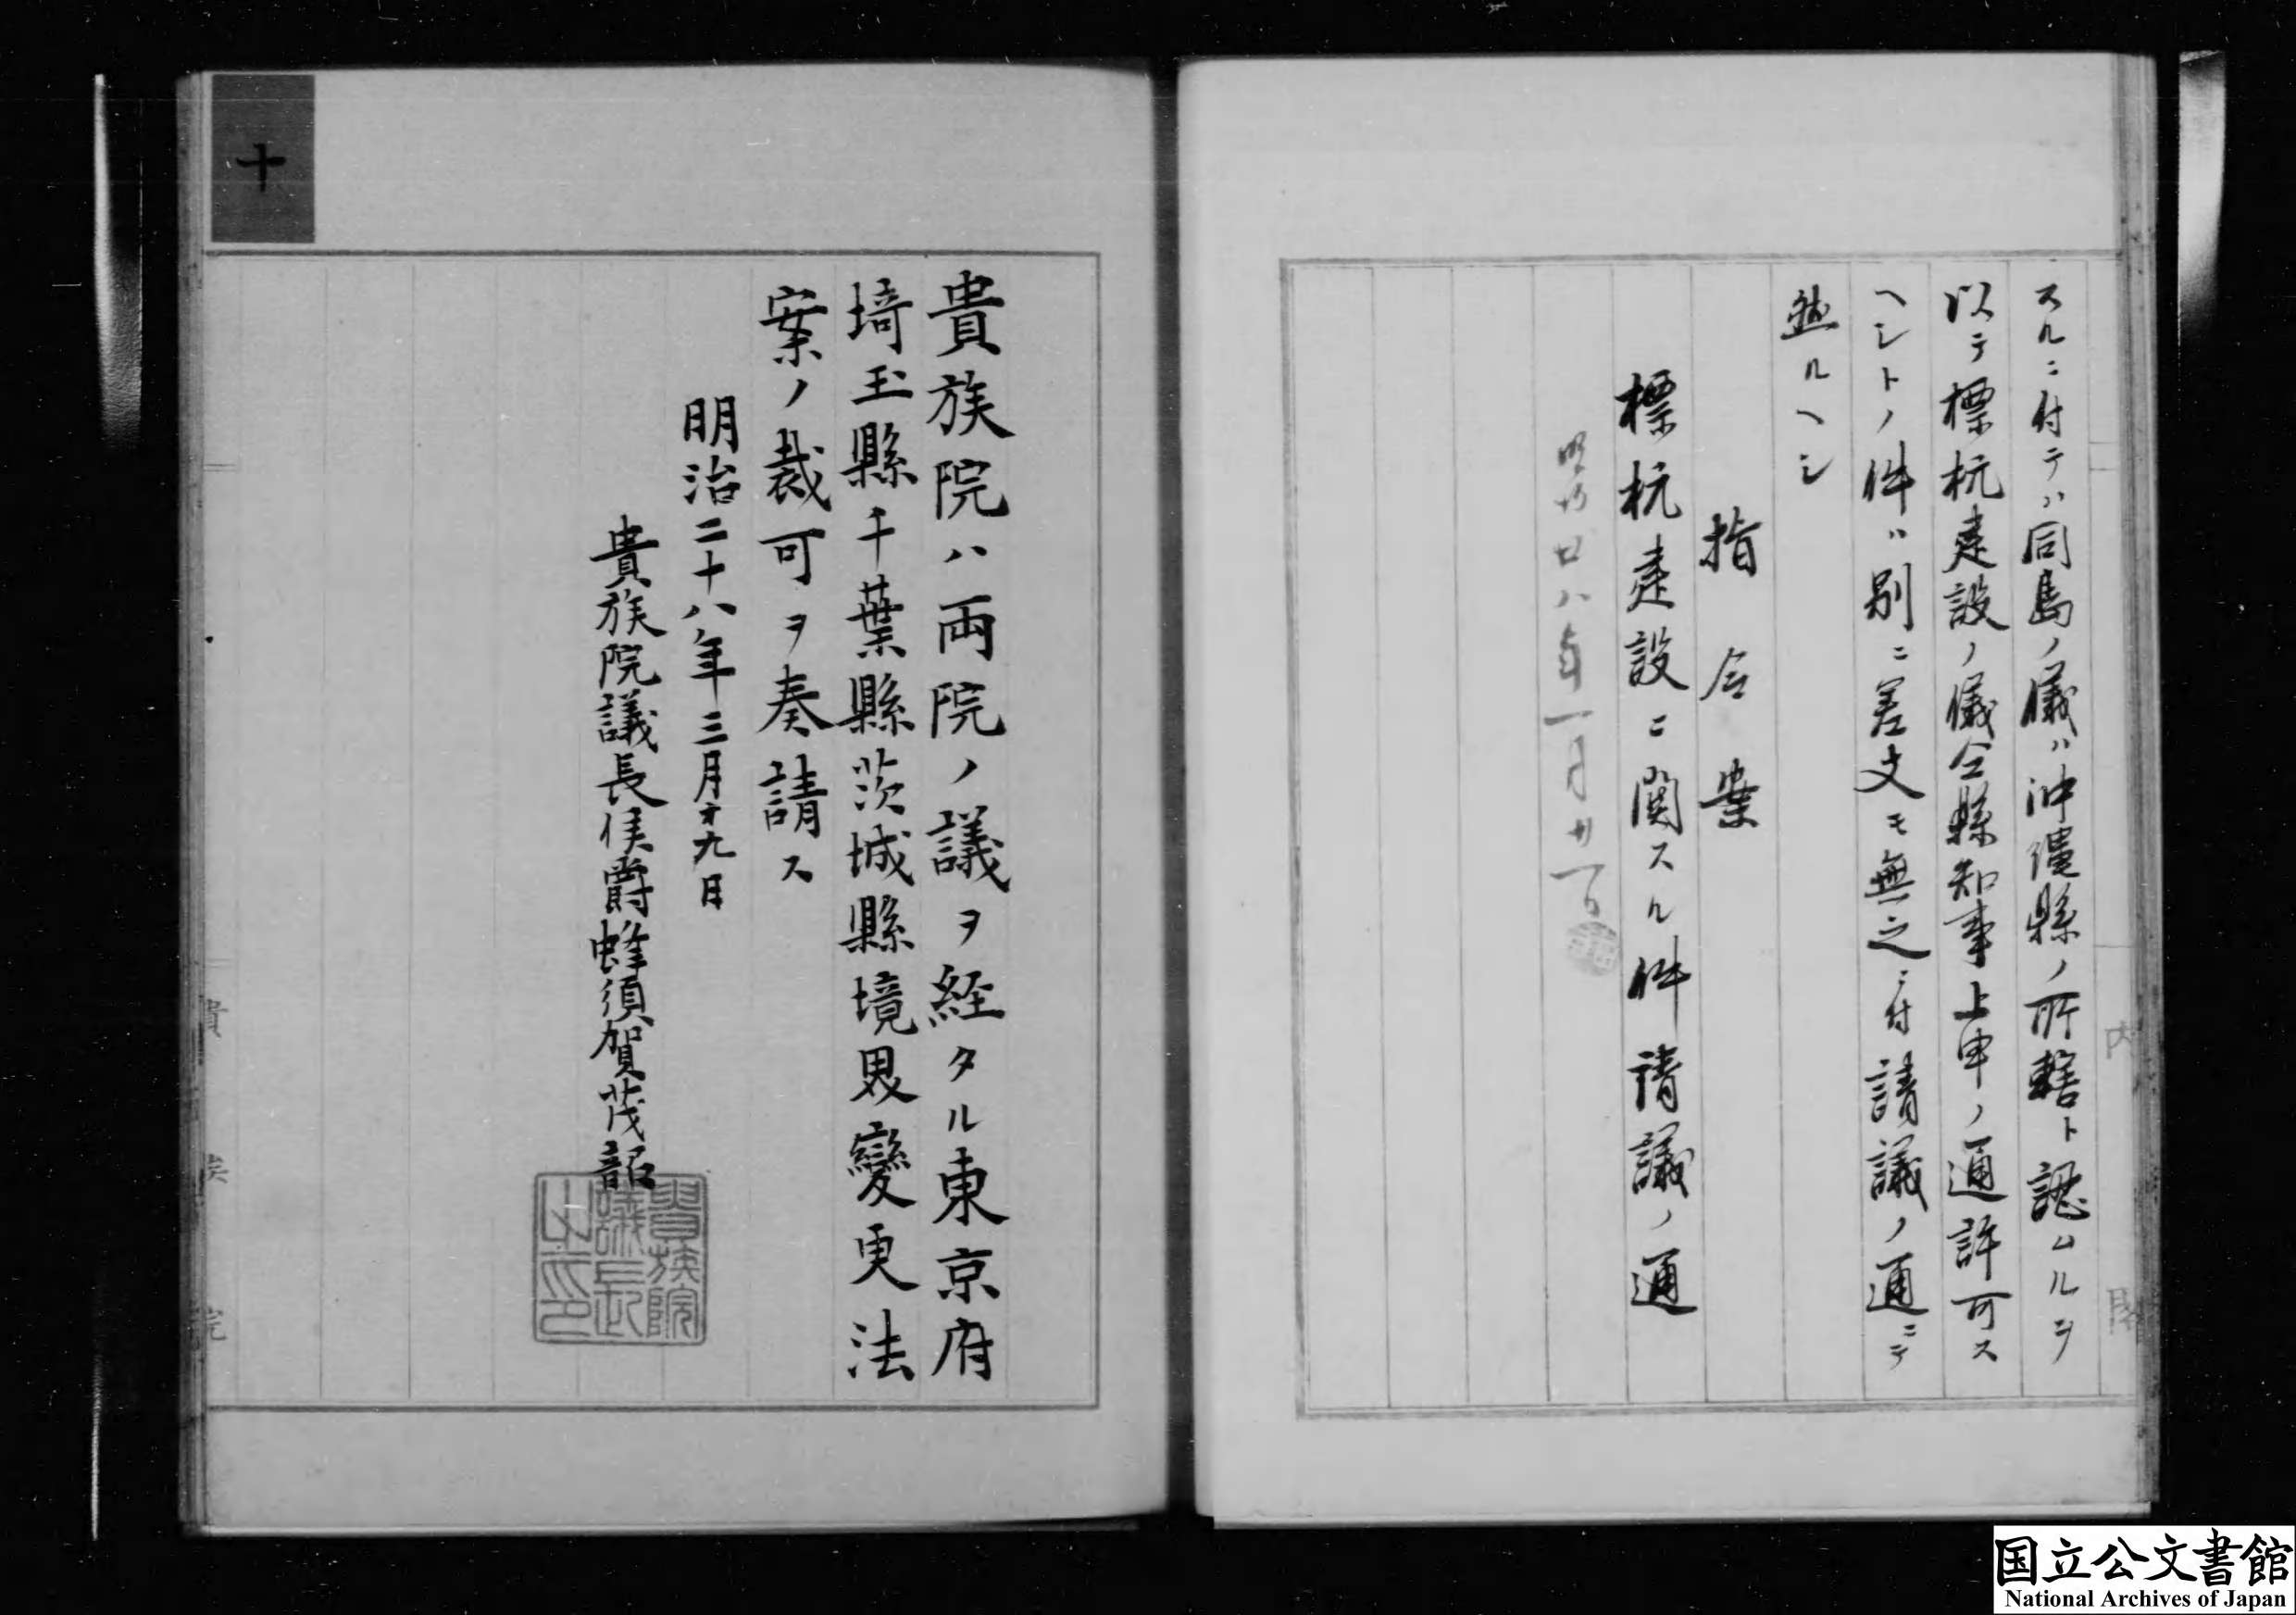 スルニ付テハ同島ノ儀ハ沖縄縣ノ所轄ト認ムルヲ
以テ標杭建設ノ儀仝縣知事上申ノ通許可ス
ヘシトノ件ハ別ニ差支モ無之ニ付請議ノ通ニテ
然ルヘシ
指令案
標杭建設ニ関スル件請議ノ通
明治廿八年一月廿一日
内閣
十
貴族院ハ両院ノ議ヲ経タル東京府
埼玉縣千葉縣茨城縣境界變更法
案ノ裁可ヲ奏請ス
明治二十八年三月十九日
貴族院議長侯爵蜂須賀茂韶
貴族院
議長
之印
貴族院
国立公文書館
National Archives of Japan